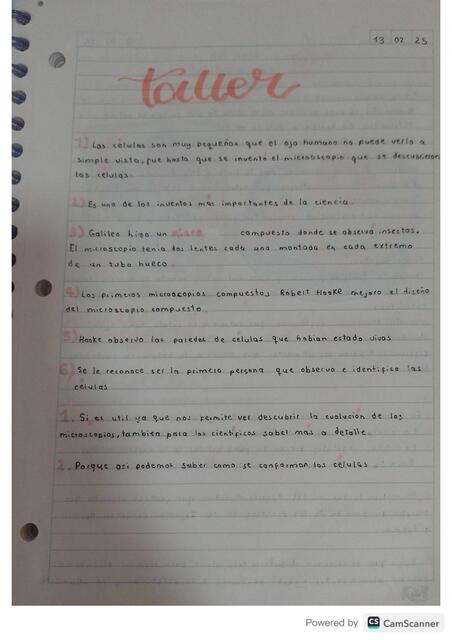 13 02 25
taller
1) Las células son muy pequeñas que el ojo humano no puede verlo a
simple vista, fue hasta que se invento el microscopio que se descubrieron
las células.
2) Es uno de los inventos más importantes de la ciencia.
3) Galileo hizo un micro compuesto donde se observó insectos.
El microscopio tenia dos lentes cada una montada en cada extremo
de un tubo hueco.
4) Los primeros microscopios compuestos Robert Hooke mejoro el diseño
del microscopio compuesto.
5) Hooke observo las paredes de células que habian estado vivas
6) Se le reconoce ser la primera persona que observo e identifico las
células
1. Si es util ya que nos permite ver descubrir la evolución de los
microscopios, tambien para los científicos saber más a detalle.
2. Porque asi podemos saber como se conforman las células.
Powered by CS CamScanner